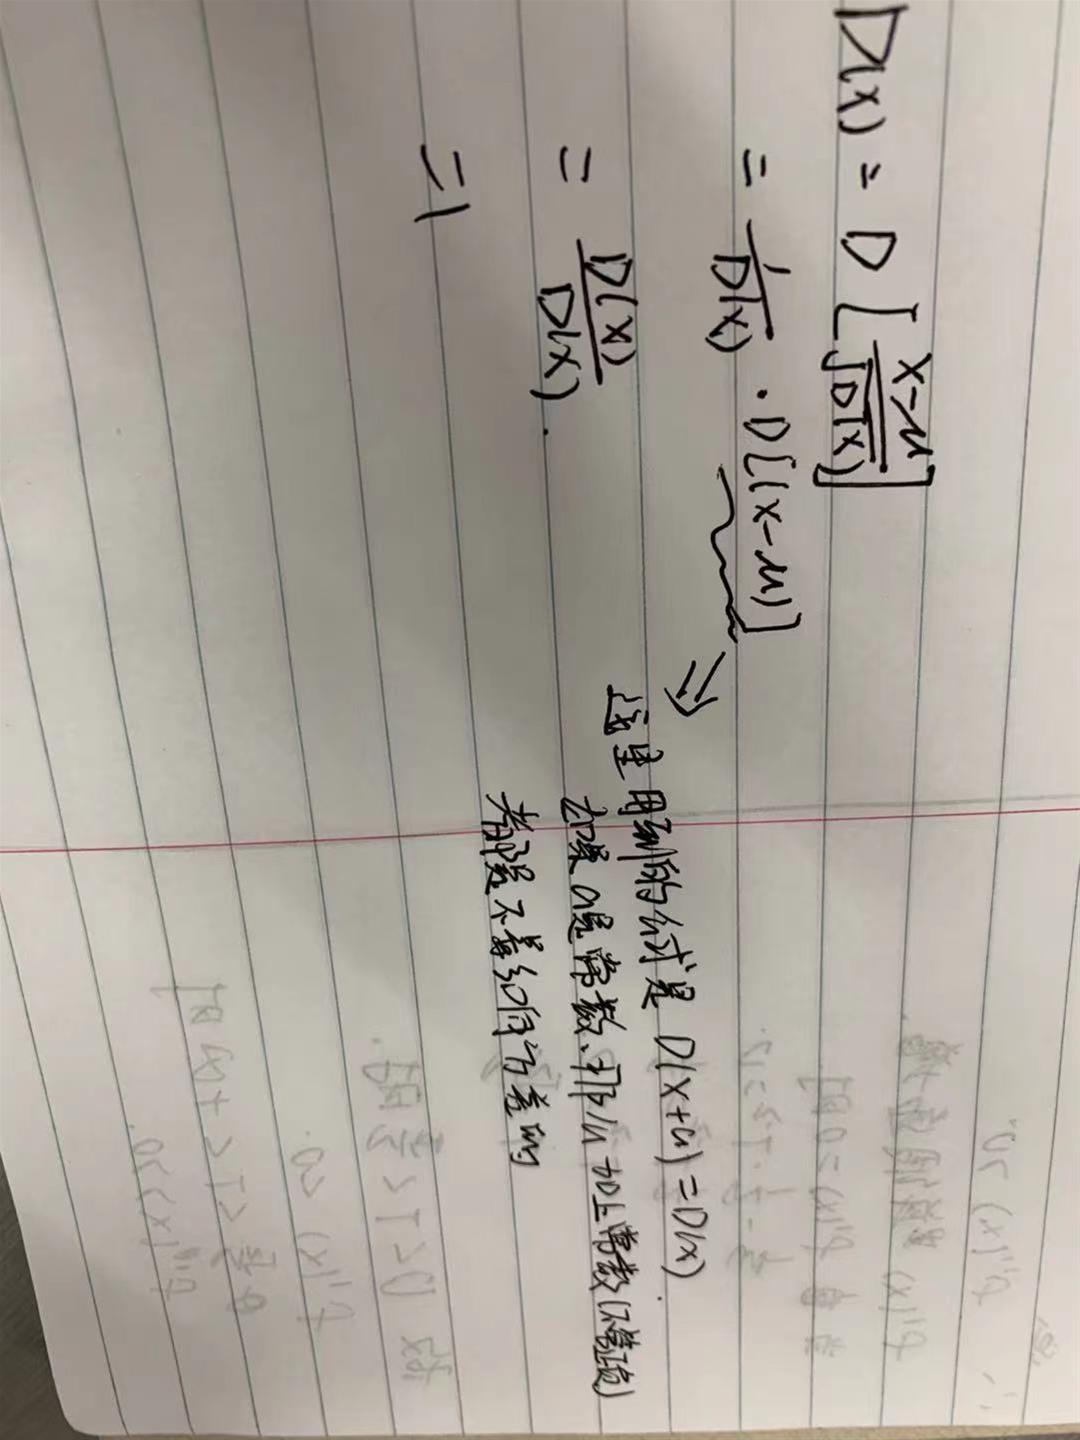 D(x) = D[\frac{x-μ}{\sqrt{D(x)}}]
= \frac{1}{D(x)} · D[(x-μ)]
= \frac{D(x)}{D(x)}.
=1
⇒ 这里用到的公式是 D(x+a)=D(x).
如果a是常数,那么加上常数(不管正负)
都是不影响方差的